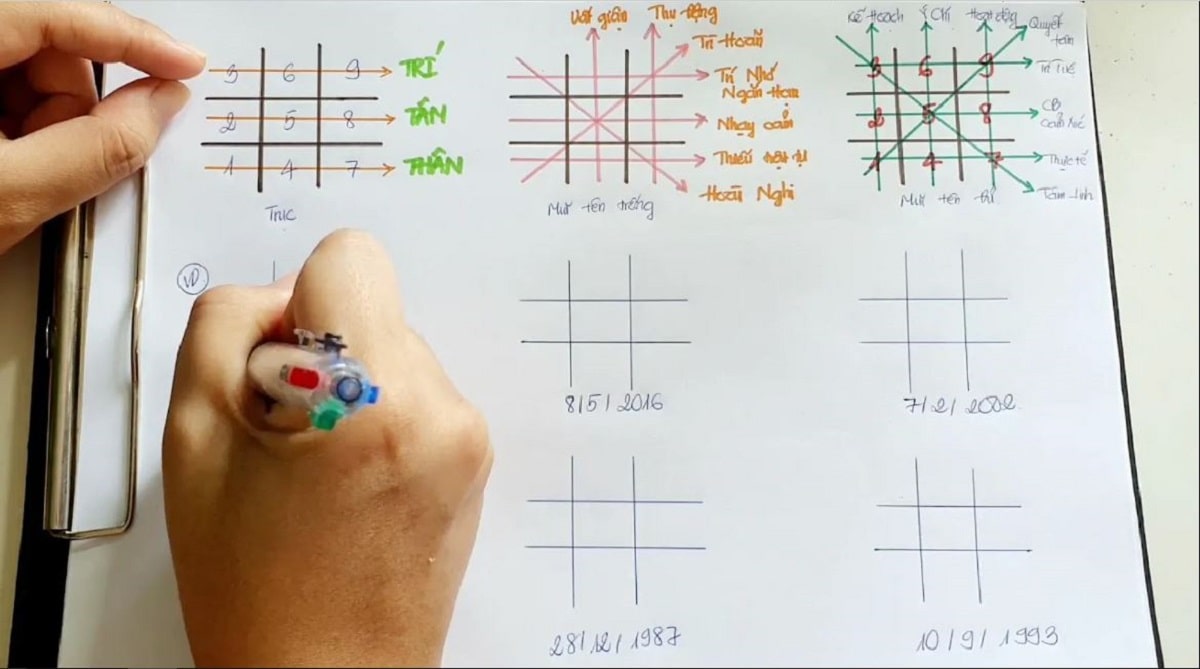 3 6 9 TRÍ
2 5 8 TÂN
1 4 7 THÂN
Trục
Uất giận
Thụ động
Trì Hoãn
Trí Nhớ
Ngắn Hạn
Nhạy cảm
Thiếu trật tự
Hoài Nghi
Mũi tên trống
Kế Hoạch
Ý Chí
Hoạt động
Quyết
tâm
3 6 9
Trí Tuệ
2 5 8
CB
Cảm Xúc
1 4 7
Thực tế
Tâm linh
Mũi tên
VD
8/5/2016
7/2/2002
28/12/1987
10/9/1993